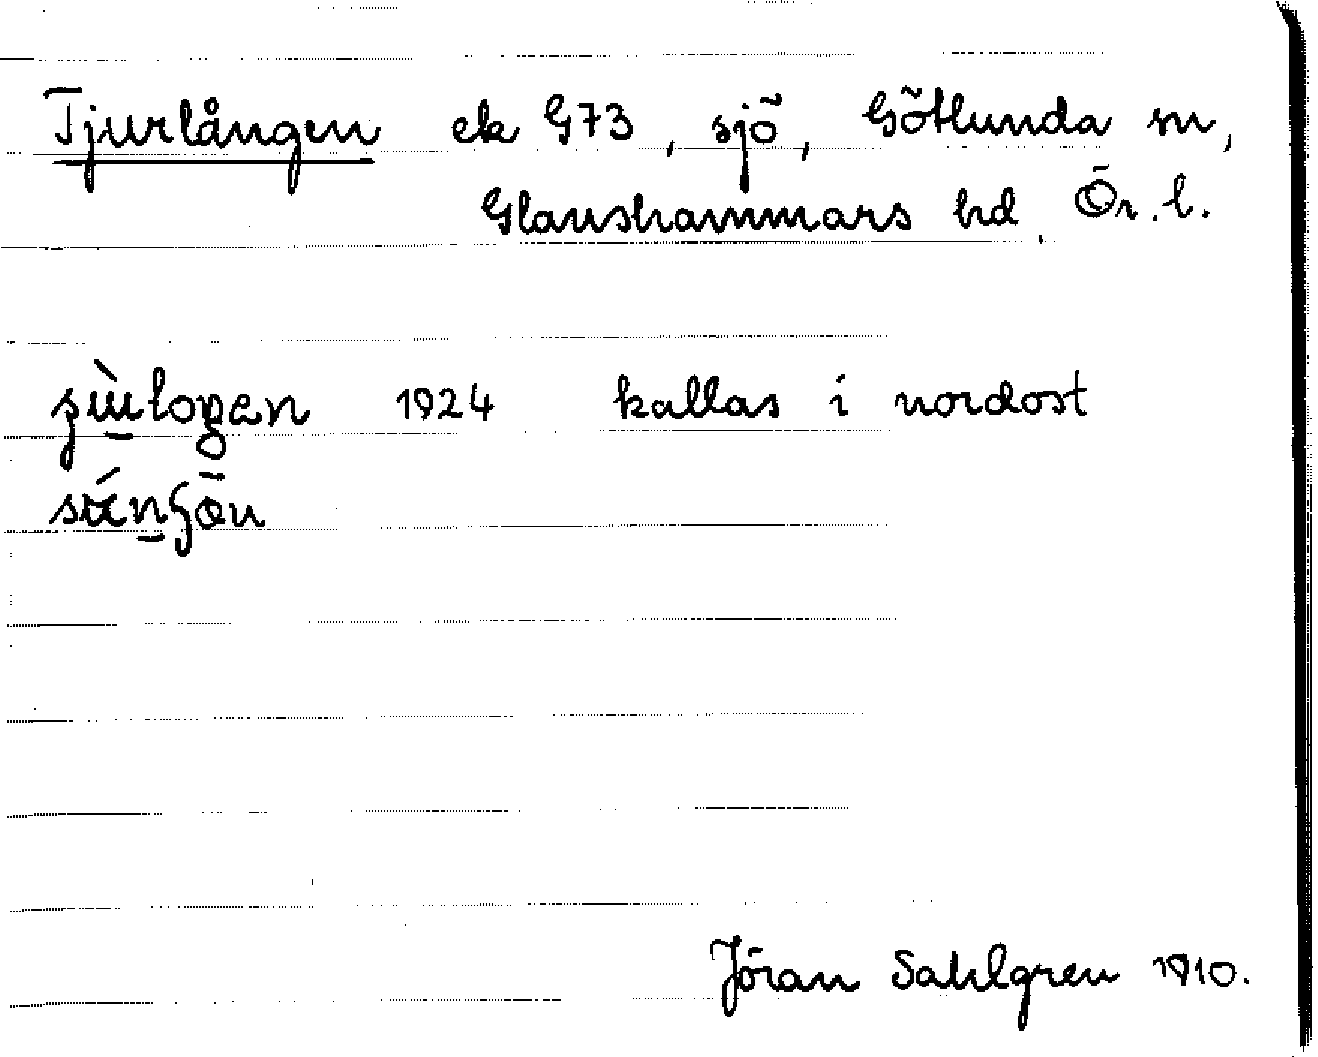 Tjurlången ek G73, sjö, Götlunda sn,
Glanshammars hd. Ör. l.
1924 kallas i nordost
Jöran Sahlgren 1910.